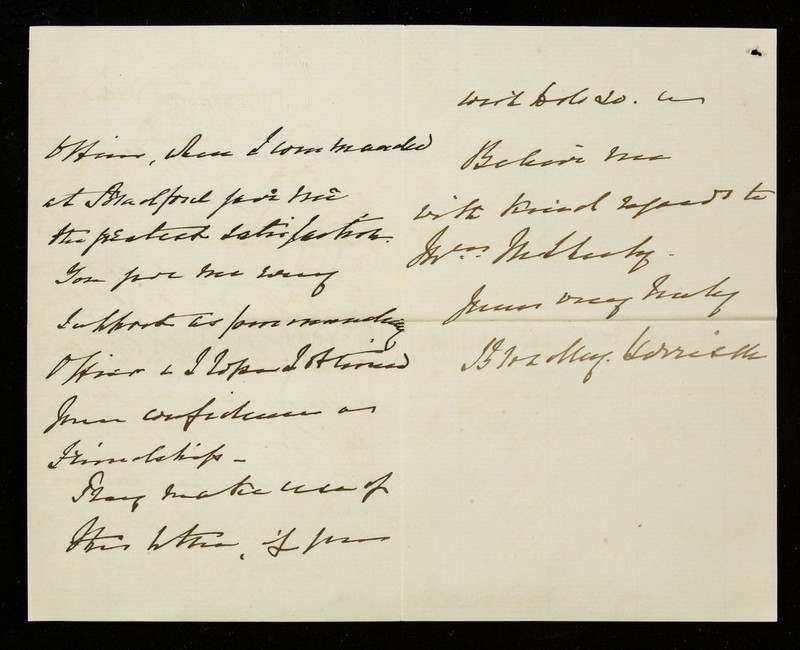 Officer, when I commanded
at Bradford gave me
the greatest satisfaction.
You gave me every
support as commanding
Officer & I hope I obtained
your confidence as
Friendship -
Pray make use of
this letter, if you
wish to do so. as
Believe me
with kind regards to
Mrs.
yours very truly
Bradley